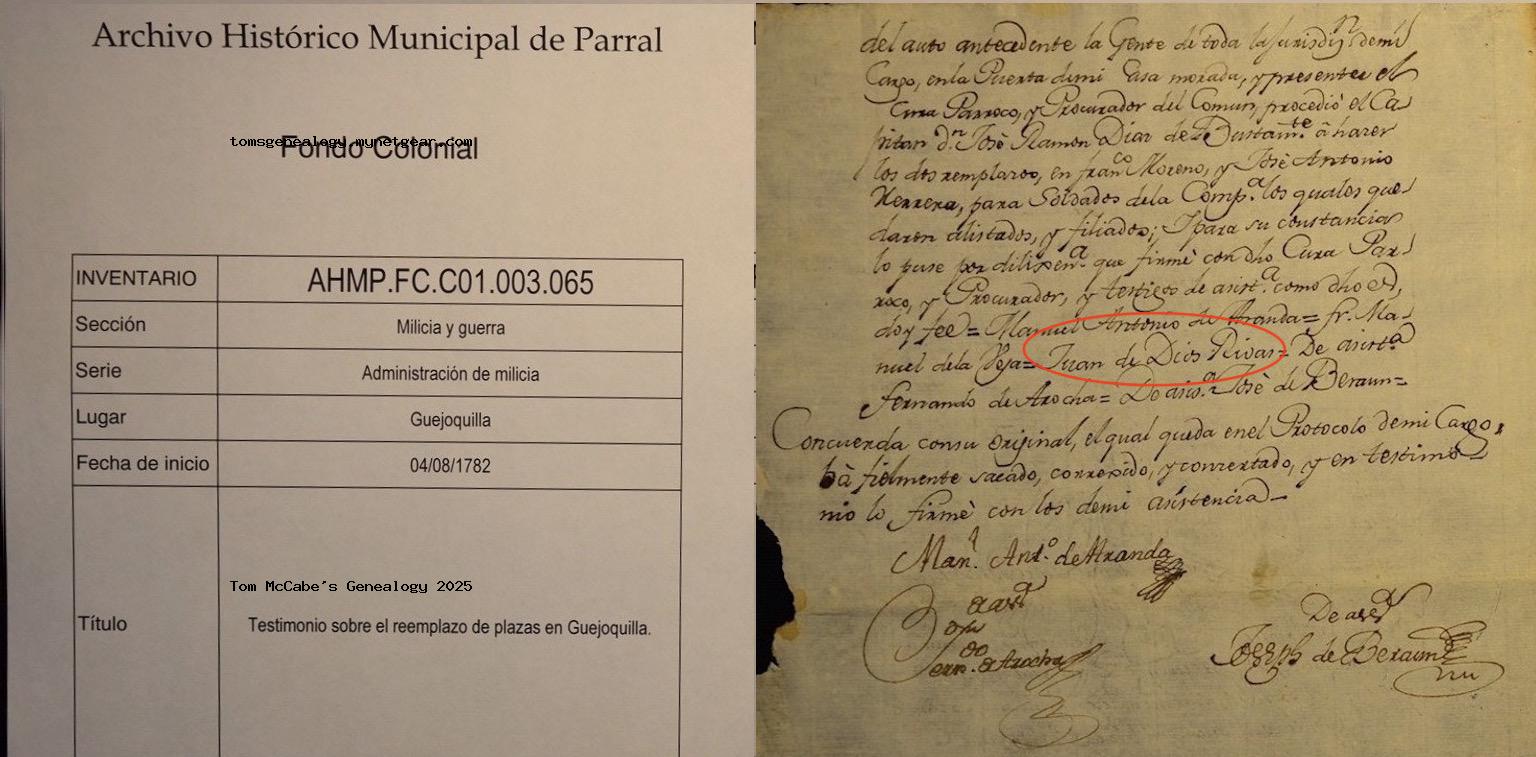 Archivo Histórico Municipal de Parral
tomsgenealogy.mynetgear.com
Fondo Colonial
INVENTARIO AHMP.FC.C01.003.065
Sección Milicia y guerra
Serie Administración de milicia
Lugar Guejoquilla
Fecha de inicio 04/08/1782
Tom McCabe's Genealogy 2025
Título Testimonio sobre el reemplazo de plazas en Guejoquilla.
del auto antecedente la Gente de toda la Jurisdiⁿ demi
Cargo, enla Puerta demi Casa morada, y presentes el
Cura Parroco, y Procurador del Comun, procedió el Ca
pitan dⁿ Josè Ramon Diaz de Bustamᵗᵉ â hazer
los dos remplazos, en franᶜᵒ Moreno, y Josè Antonio
Herrera, para Soldados dela Compᵃ los quales que
daron alistados, y filiados; Ypara su constancia
lo puse por dilixenᵃ que firmè con dho Cura Par
roco, y Procurador, y testigos de asistᵃ como dho es,
doy fee= Manuel Antonio de Aranda= fr. Ma
nuel dela Vega= Juan de Dios Rivas= De asistᵃ
Fernando de Arocha= De asisᵃ Josè de Beraun=
Concuerda consu orijinal, el qual queda enel Protocolo demi Cargo,
bà fielmente sacado, correxido, y concertado, y en testimo
nio lo firmè con los demi asistencia
Manˡ. Antº. de Aranda
De assᵃ
Fernᵈᵒ de Arocha
De assᵃ
Joseph de Beraun